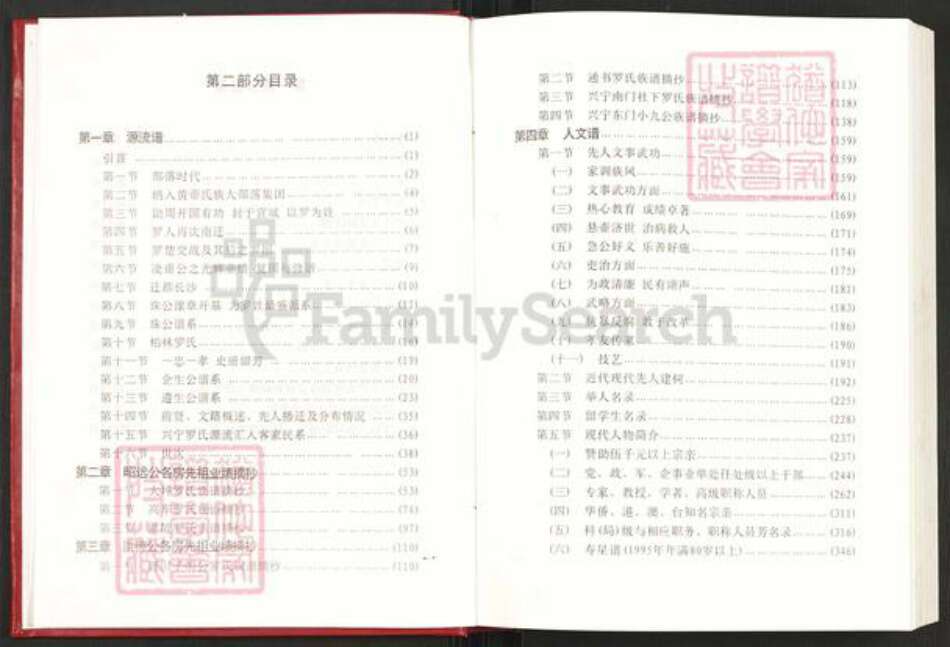 第二部分目录
第一章 源流谱 (1)
引言 (1)
第一节 部落时代 (2)
第二节 纳入黄帝氏族大部落集团 (4)
第三节 助周开国有功 封于宜城 以罗为姓 (5)
第四节 罗人再次南迁 (6)
第五节 罗楚交战及其后之 (7)
第六节 (9)
第七节 迁都长沙 (10)
第八节 珠公豫章开基 为罗 (17)
第九节 珠公谱系
第十节 柏林罗氏 (16)
第十一节 一忠一孝 史册留芳 (19)
第十二节 企生公谱系 (20)
第十三节 遵生公谱系 (23)
第十四节 前贤、文籍概述、先人播迁及分布情况 (35)
第十五节 兴宁罗氏源流汇入客家民系 (36)
第十六节 (38)
第二章 昭远公各房先祖业绩摘抄 (53)
第一节 罗氏族谱摘抄 (53)
第二节 罗氏族谱摘抄 (74)
第三节 (97)
第三章 公各房先祖业绩摘抄 (110)
第一节 (110)
第二节 通书罗氏族谱摘抄 (113)
第三节 兴宁南门社下罗氏族谱摘抄 (118)
第四节 兴宁东门小九公族谱摘抄 (138)
第四章 人文谱 (159)
第一节 先人文事武功 (159)
(一) 家训族风
(二) 文事武功方面 (161)
(三) 热心教育 成绩卓著 (169)
(四) 悬壶济世 治病救人 (171)
(五) 急公好义 乐善好施 (174)
(六) 吏治方面 (175)
(七) 为政清廉 民有颂声 (182)
(八) 武略方面 (183)
(九) 抗暴反腐 敢于改革 (186)
(十) 孝友传家 (190)
(十一) 技艺 (191)
第二节 近代现代先人建树 (192)
第三节 举人名录 (225)
第四节 留学生名录 (228)
第五节 现代人物简介 (237)
(一) 赞助伍千元以上宗亲 (237)
(二) 党、政、军、企事业单处任处级以上干部 (244)
(三) 专家、教授、学者、高级职称人员 (262)
(四) 华侨、港、澳、台知名宗亲 (311)
(五) 科(局)级与相应职务、职称人员芳名录 (316)
(六) 寿星谱(1995年年满80岁以上) (346)
FamilySearch